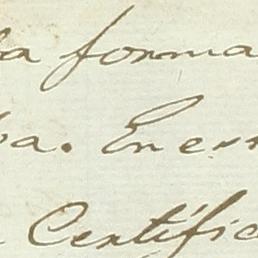 a forma
a. En es
Certific